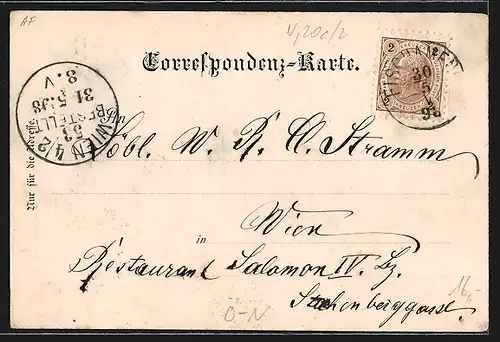 AF
Correspondenz-Karte.
2
30
5
98
WIEN 4/2
53
BESTELLT
31.5.98
8.V
An
Nur für die Adresse.
Löbl. W. R. C. Stramm
Wien
in
Restaurant Salomon IV. Bz.
O-N
16,-